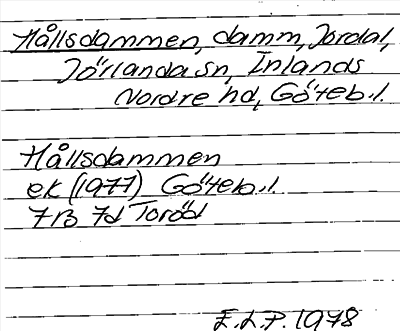 Hållsdammen, damm, Jordal,
Jörlanda sn, Inlands
Nordre hd, Göteb.l.
Hållsdammen
ek (1977) Göteb.l.
7B 7d Toröd
E.L.P. 1978